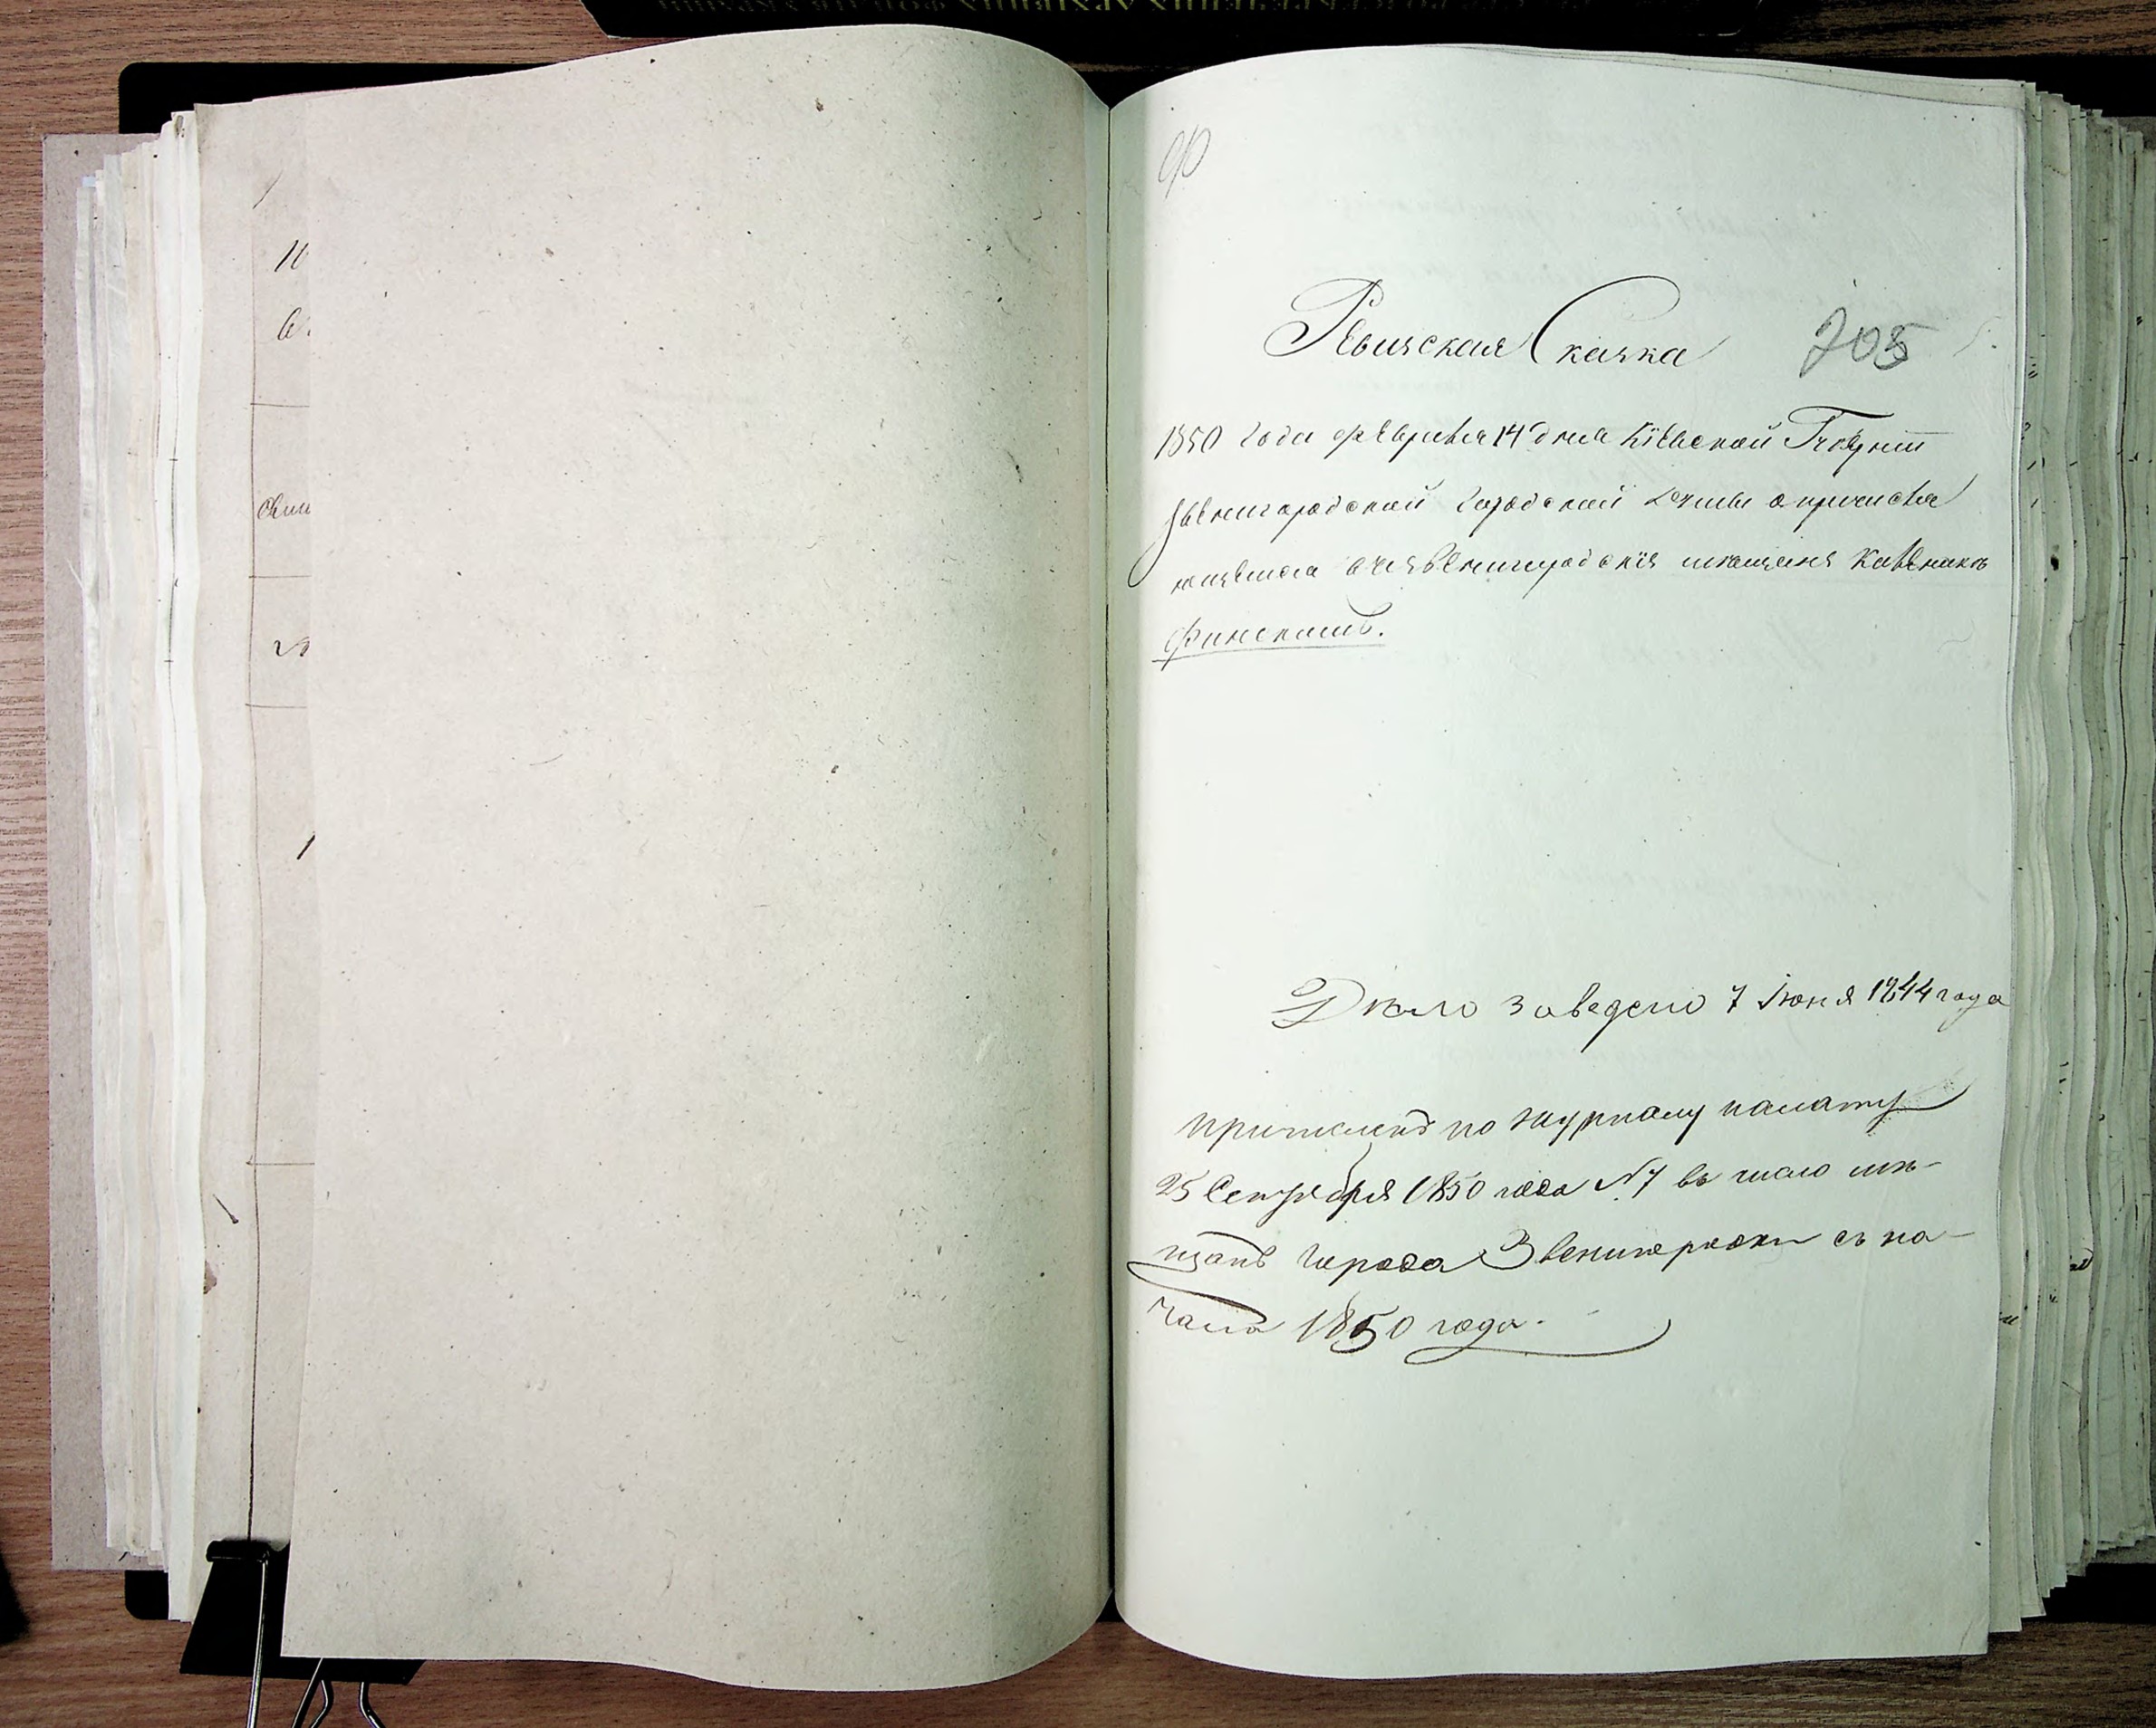 90
Ревизская Сказка 705
1850 года февраля 14 дня Кіевской Губерніи
Звенигородской Городской Думы о причисля
ющемся въ Звенигородскія мѣщаня
Финскомъ.
Дѣло заведено 7 Іюня 1844 года
причисленъ по журналу палаты
25 Сентября 1850 года N 7 въ число мѣ-
щанъ города Звенигородки съ на-
чала 1850 года.